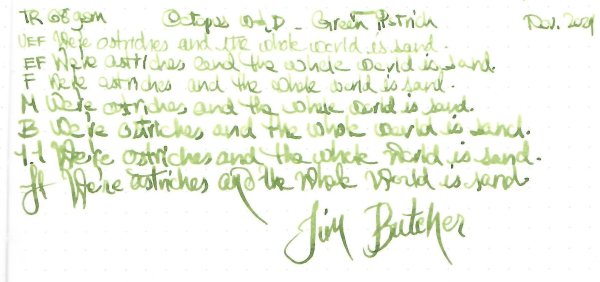 TR 68gsm Octopus W&D - Green Ostrich Nov. 2021
UEF We're ostriches and the whole world is sand.
EF We're ostriches and the whole world is sand.
F We're ostriches and the whole world is sand.
M We're ostriches and the whole world is sand.
B We're ostriches and the whole world is sand.
1.1 We're ostriches and the whole world is sand.
ft We're ostriches and the whole world is sand.
Jim Butcher